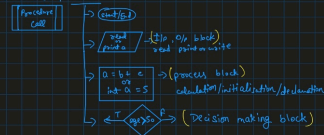 Procedure
Call
start/End
read
or
print a
(I/P, O/P block)
read print or write
a = b + c
or
int a = 5
(process block)
calculation/initialisation/declaration
T
age>50
F
(Decision making block)